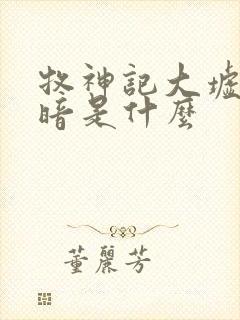 牧神記大墟
暗是什麼
董麗芳